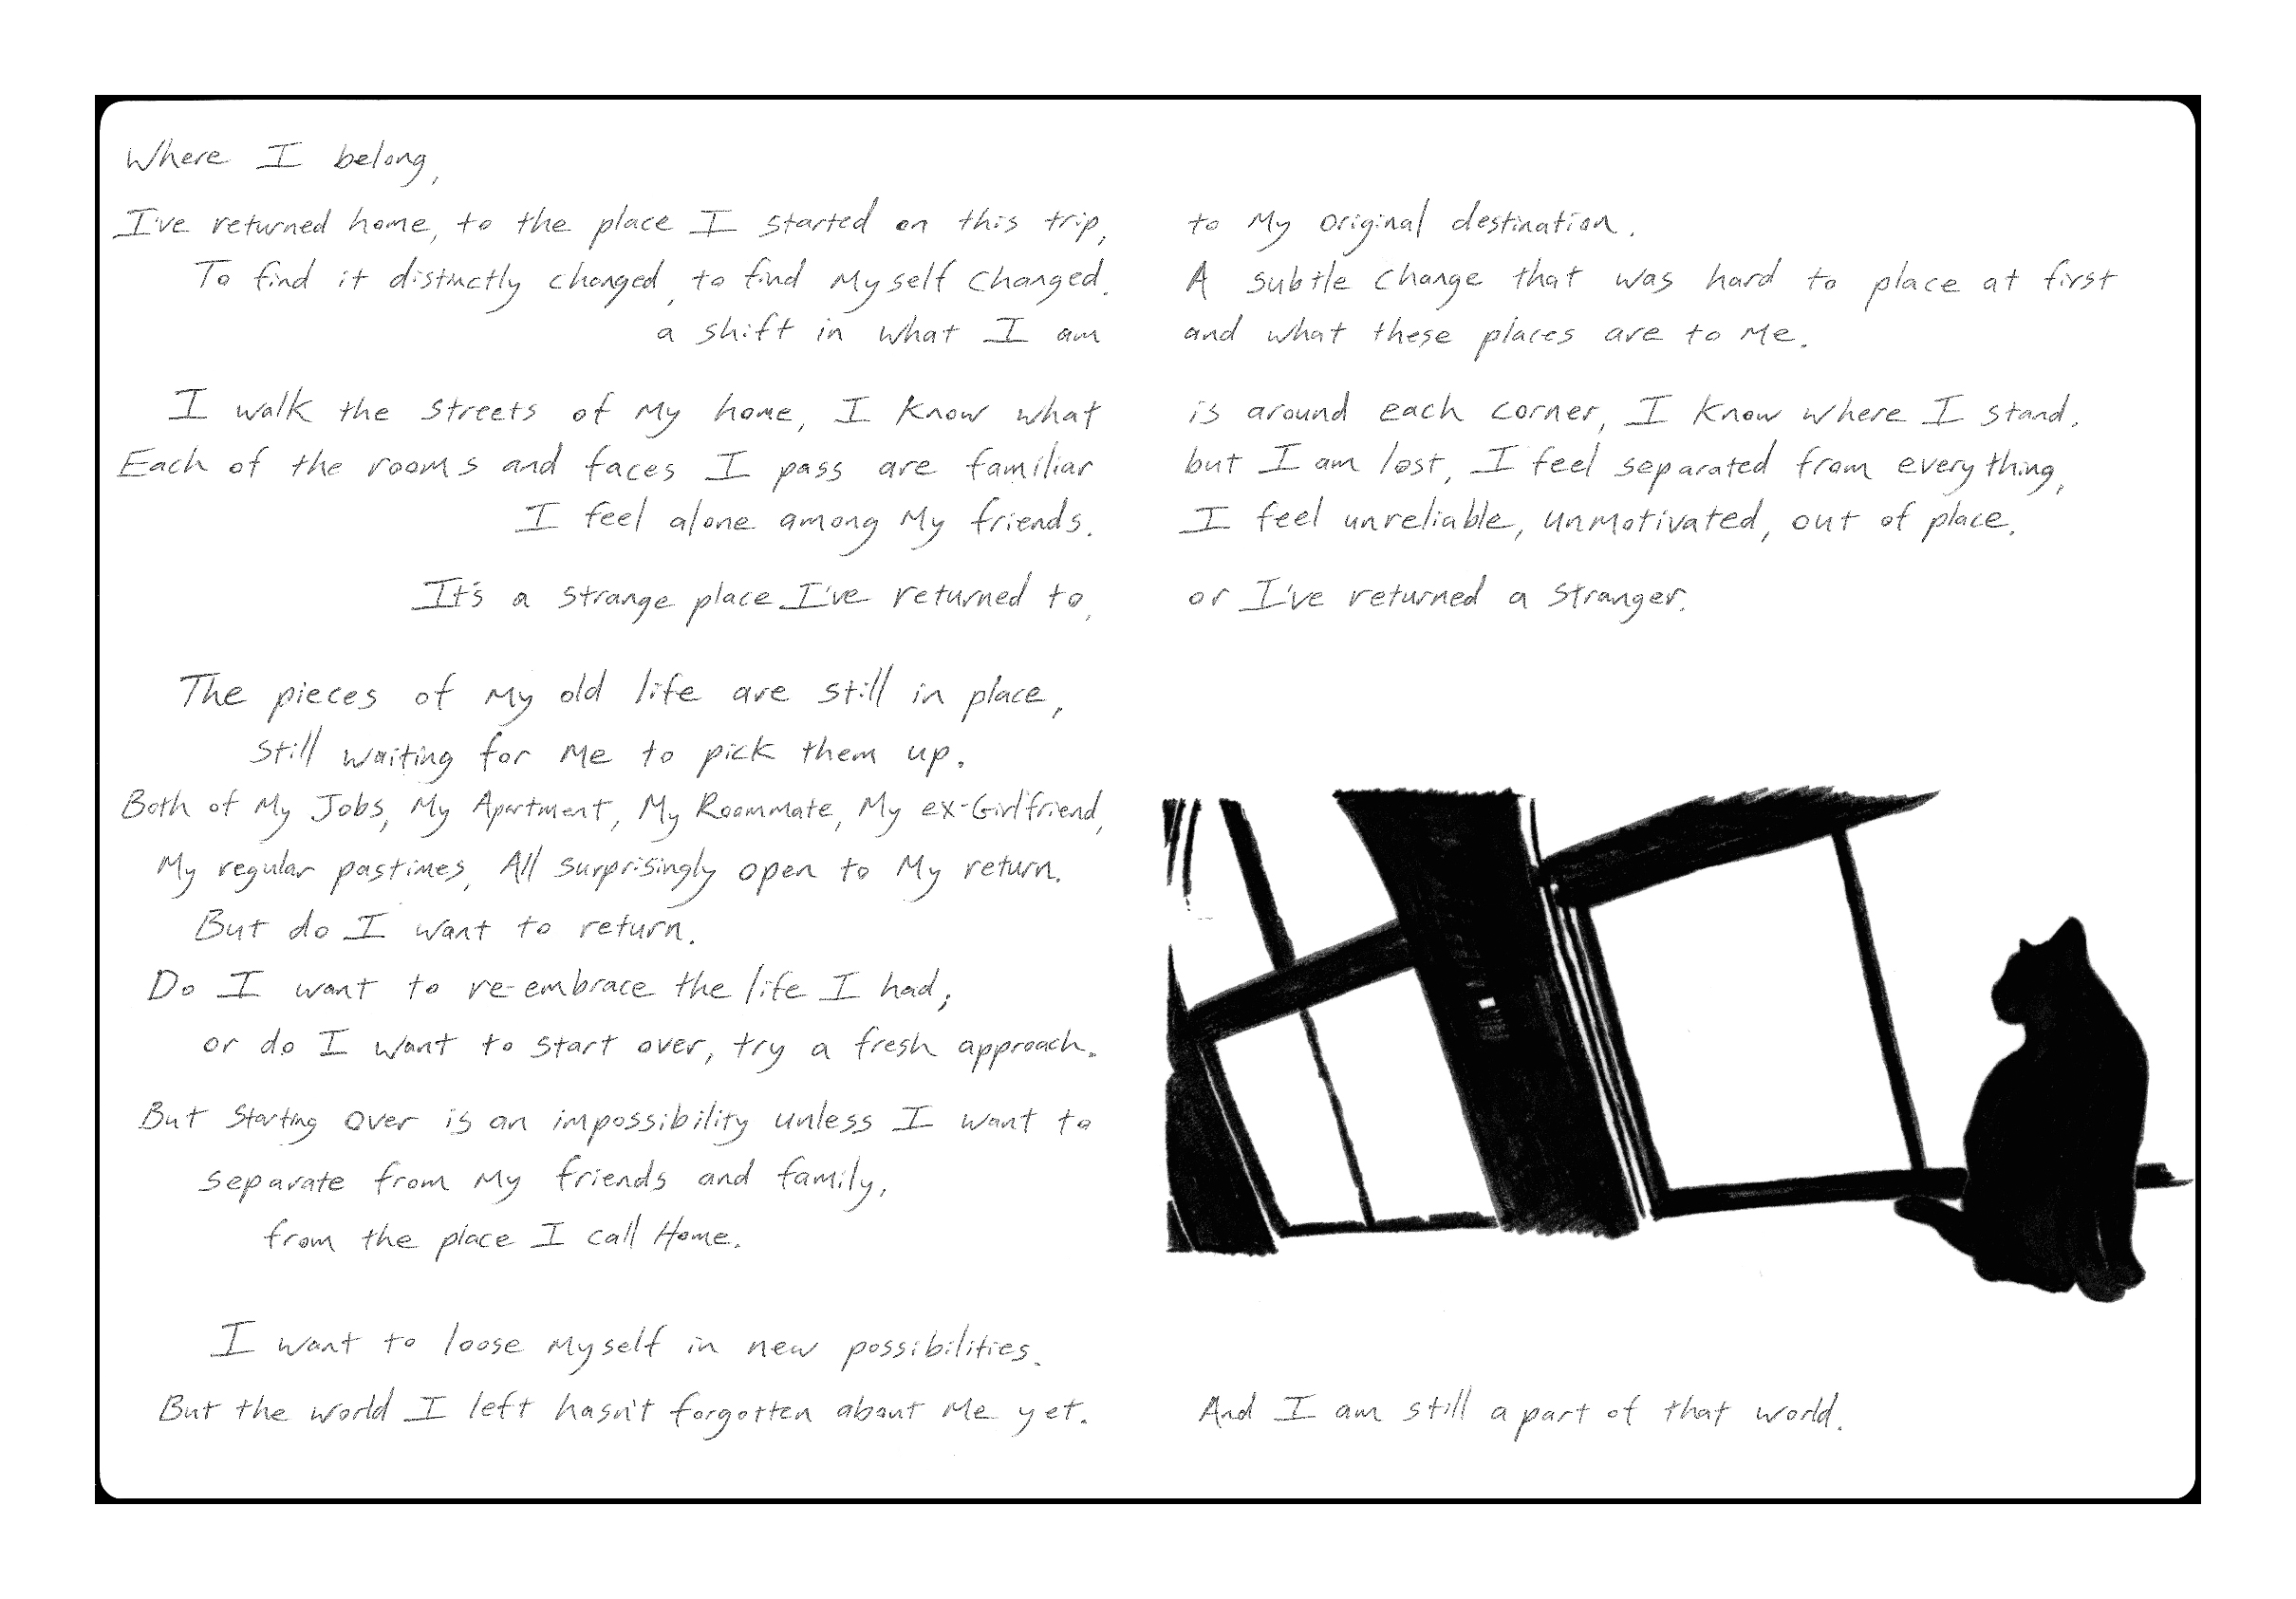 Where I belong,
I've returned home, to the place I started on this trip, to My original destination.
To find it distinctly changed, to find Myself Changed. A subtle change that was hard to place at first
a shift in what I am and what these places are to Me.
I walk the streets of My home, I know what is around each corner, I know where I stand.
Each of the rooms and faces I pass are familiar but I am lost, I feel separated from everything,
I feel alone among My friends. I feel unreliable, unmotivated, out of place.
It's a strange place I've returned to, or I've returned a stranger.
The pieces of My old life are still in place,
still waiting for Me to pick them up.
Both of My Jobs, My Apartment, My Roommate, My ex-Girlfriend,
My regular pastimes, All surprisingly open to My return.
But do I want to return.
Do I want to re-embrace the life I had;
or do I want to start over, try a fresh approach.
But Starting Over is an impossibility unless I want to
separate from My friends and family,
from the place I call Home.
I want to loose Myself in new possibilities.
But the world I left hasn't forgotten about Me yet. And I am still a part of that world.